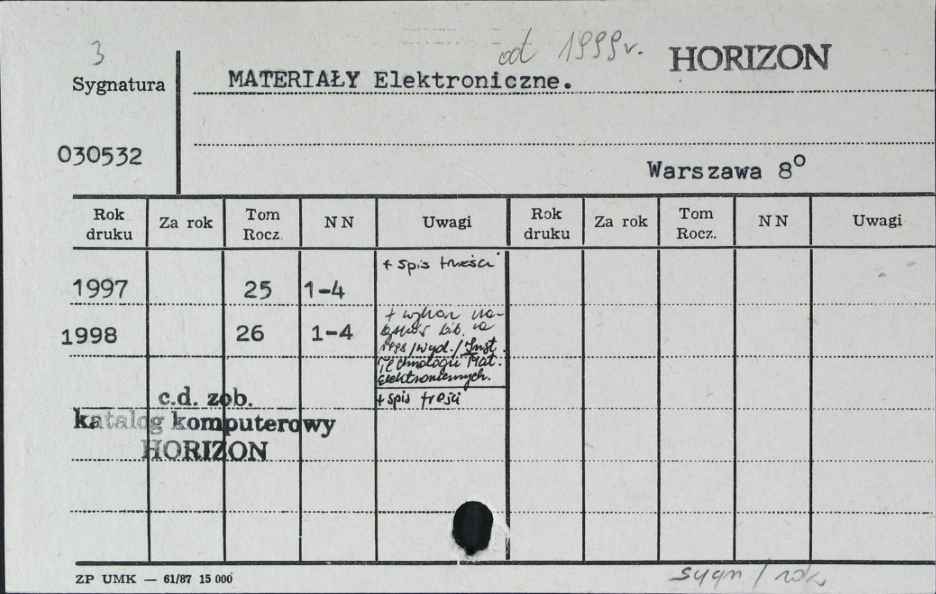 3
od 1999r. HORIZON
Sygnatura
MATERIAŁY Elektroniczne.
030532
Warszawa 8°
Rok druku Za rok Tom Rocz. N N Uwagi Rok druku Za rok Tom Rocz. N N Uwagi
+ spis treści
1997 25 1-4
1998 26 1-4
+ wykaz na-
bytków bib. za
1998/wyd./Inst.
Technologii Mat.
elektronicznych.
+ spis treści
c.d. zob.
katalog komputerowy
HORIZON
ZP UMK — 61/87 15 000
sygn / rok